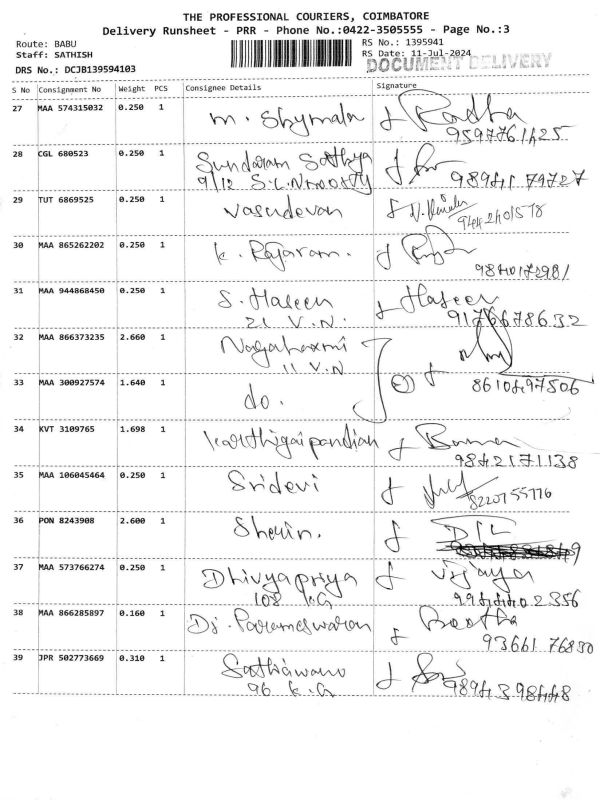 THE PROFESSIONAL COURIERS, COIMBATORE
Delivery Runsheet - PRR - Phone No.:0422-3505555 - Page No.:3
Route: BABU
Staff: SATHISH
DRS No.: DCJB139594103
RS No.: 1395941
RS Date: 11-Jul-2024
DOCUMENT DELIVERY
S No Consignment No Weight PCS Consignee Details Signature
27 MAA 574315032 0.250 1 m. Shymala Radha
9597761425
28 CGL 680523 0.250 1 Sundaram Sathya
9/12 S.L.N moorty 98941 79727
29 TUT 6869525 0.250 1 vasudevan
9442401578
30 MAA 865262202 0.250 1 k. Rajaram.
9840172981
31 MAA 944868450 0.250 1 S. Haseen Haseen
21 V.N. 9176678632
32 MAA 866373235 2.660 1 Nagalaxmi
11 V.N
33 MAA 300927574 1.640 1 do. 2 8610497506
34 KVT 3109765 1.698 1 karthigaipandian
9842171138
35 MAA 106045464 0.250 1 Sridevi
8220755776
36 PON 8243908 2.600 1 Sherin.
37 MAA 573766274 0.250 1 Dhivyapriya Vijaya
108 K.G 9944402356
38 MAA 866285897 0.160 1 D. Parameswaran
93661 76830
39 JPR 502773669 0.310 1
96 K.G 9894398448